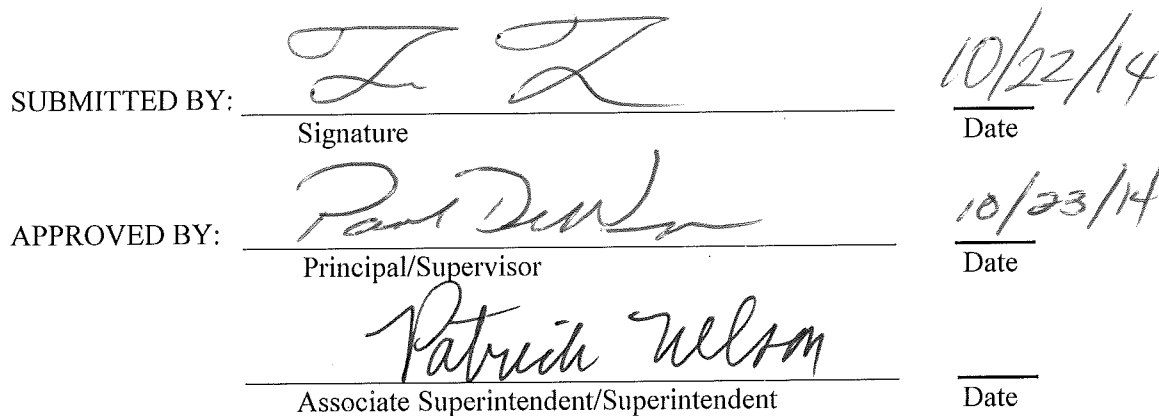 SUBMITTED BY: 10/22/14
Signature Date
APPROVED BY: Paul 10/23/14
Principal/Supervisor Date
Patrick Nelson
Associate Superintendent/Superintendent Date